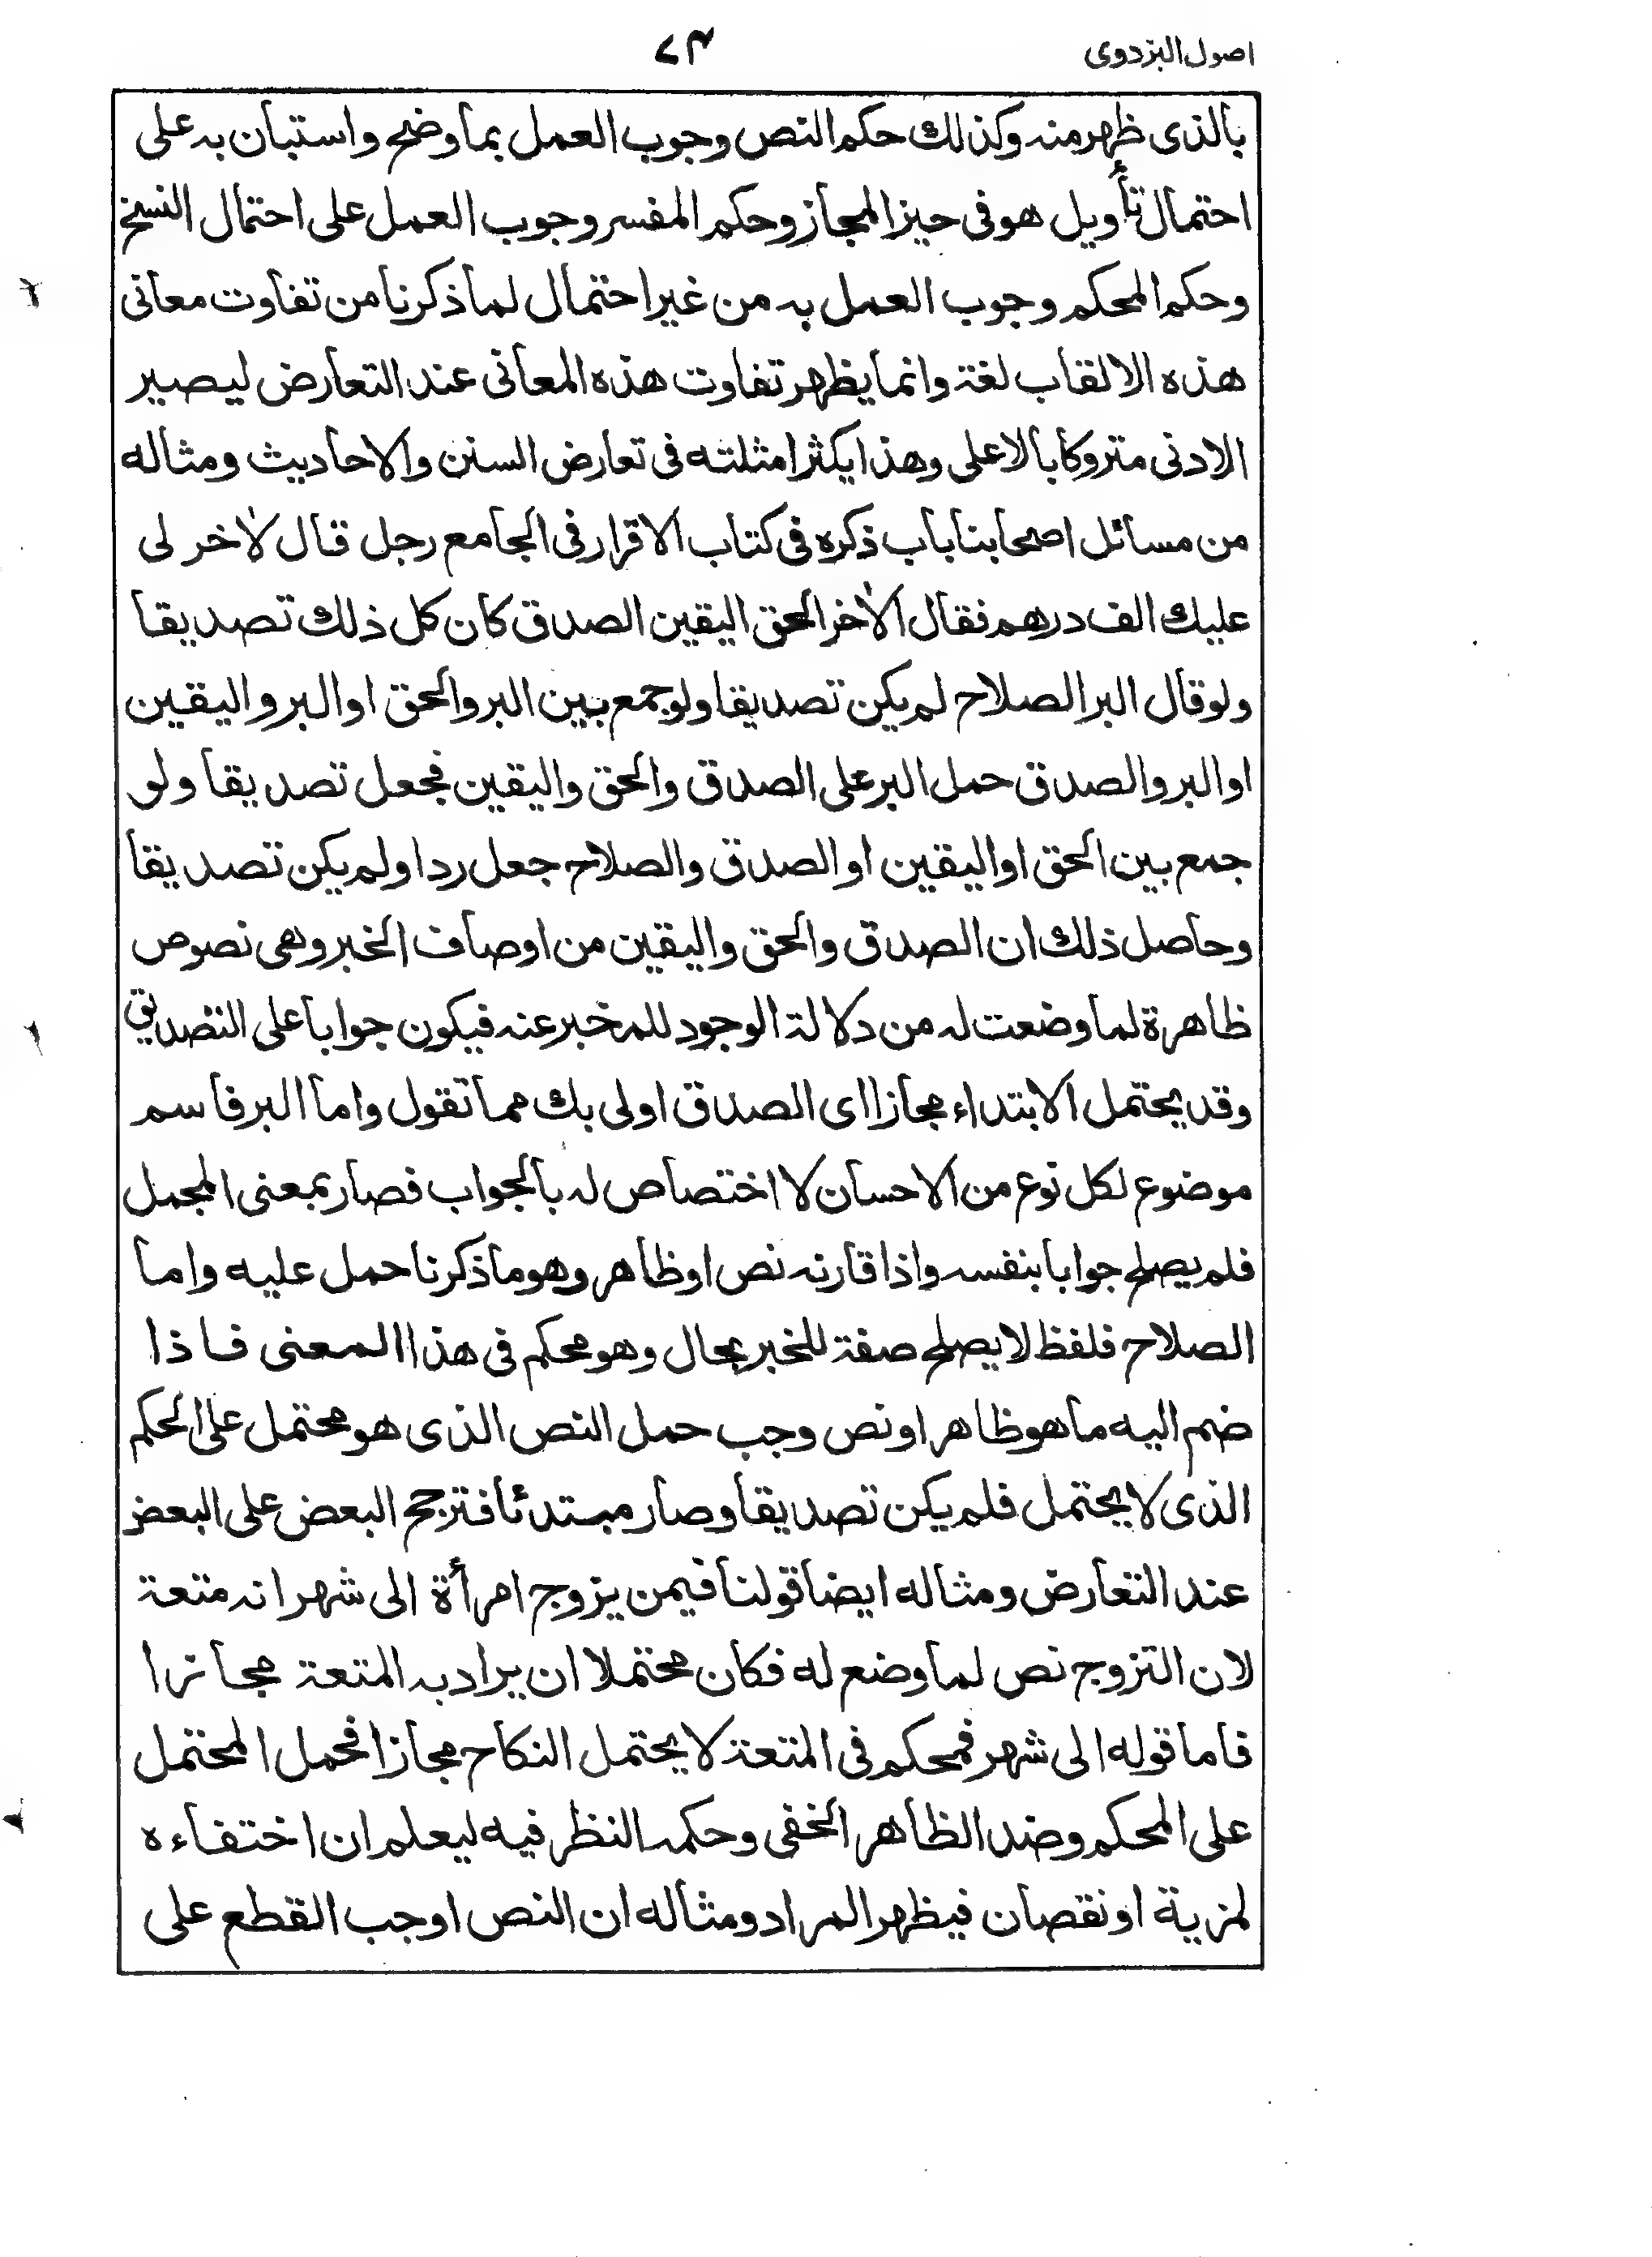 اصول البزدوى
٧٤
بالذى ظهر منه وكذلك حكم النص وجوب العمل بما وضح واستبان به على
احتمال تأويل هو فى حيز المجاز وحكم المفسر وجوب العمل على احتمال النسخ
وحكم المحكم وجوب العمل به من غير احتمال لما ذكرنا من تفاوت معانى
هذه الالقاب لغة وانما يظهر تفاوت هذه المعانى عند التعارض ليصير
الادنى متروكا بالاعلى وهذا يكثر امثلته فى تعارض السنن والاحاديث ومثاله
من مسائل اصحابنا باب ذكره فى كتاب الاقرار فى الجامع رجل قال لاٰخر لى
عليك الف درهم فقال الاٰخر الحق اليقين الصدق كان كل ذلك تصديقا
ولو قال البر الصلاح لم يكن تصديقا ولو جمع بين البر والحق او البر واليقين
او البر والصدق حمل البر على الصدق والحق واليقين فجعل تصديقا ولو
جمع بين الحق او اليقين او الصدق والصلاح جعل ردا ولم يكن تصديقا
وحاصل ذلك ان الصدق والحق واليقين من اوصاف الخبر وهى نصوص
ظاهرة لما وضعت له من دلالة الوجود للمخبر عنه فيكون جوابا على التصديق
وقد يحتمل الابتداء مجازا اى الصدق اولى بك مما تقول واما البر فاسم
موضوع لكل نوع من الاحسان لا اختصاص له بالجواب فصار بمعنى المجمل
فلم يصلح جوابا بنفسه واذا قارنه نص او ظاهر وهو ما ذكرنا حمل عليه واما
الصلاح فلفظ لا يصلح صفة للخبر بحال وهو محكم فى هذا المعنى فاذا
ضم اليه ما هو ظاهر او نص وجب حمل النص الذى هو محتمل على المحكم
الذى لا يحتمل فلم يكن تصديقا وصار مبتدئا فترجح البعض على البعض
عند التعارض ومثاله ايضا قولنا فيمن يزوج امرأة الى شهر انه متعة
لان التزوج نص لما وضع له فكان محتملا ان يراد به المتعة مجازا
فاما قوله الى شهر فمحكم فى المتعة لا يحتمل النكاح مجازا فحمل المحتمل
على المحكم وضد الظاهر الخفى وحكمه النظر فيه ليعلم ان اختفاءه
لمزية او نقصان فيظهر المراد ومثاله ان النص اوجب القطع على